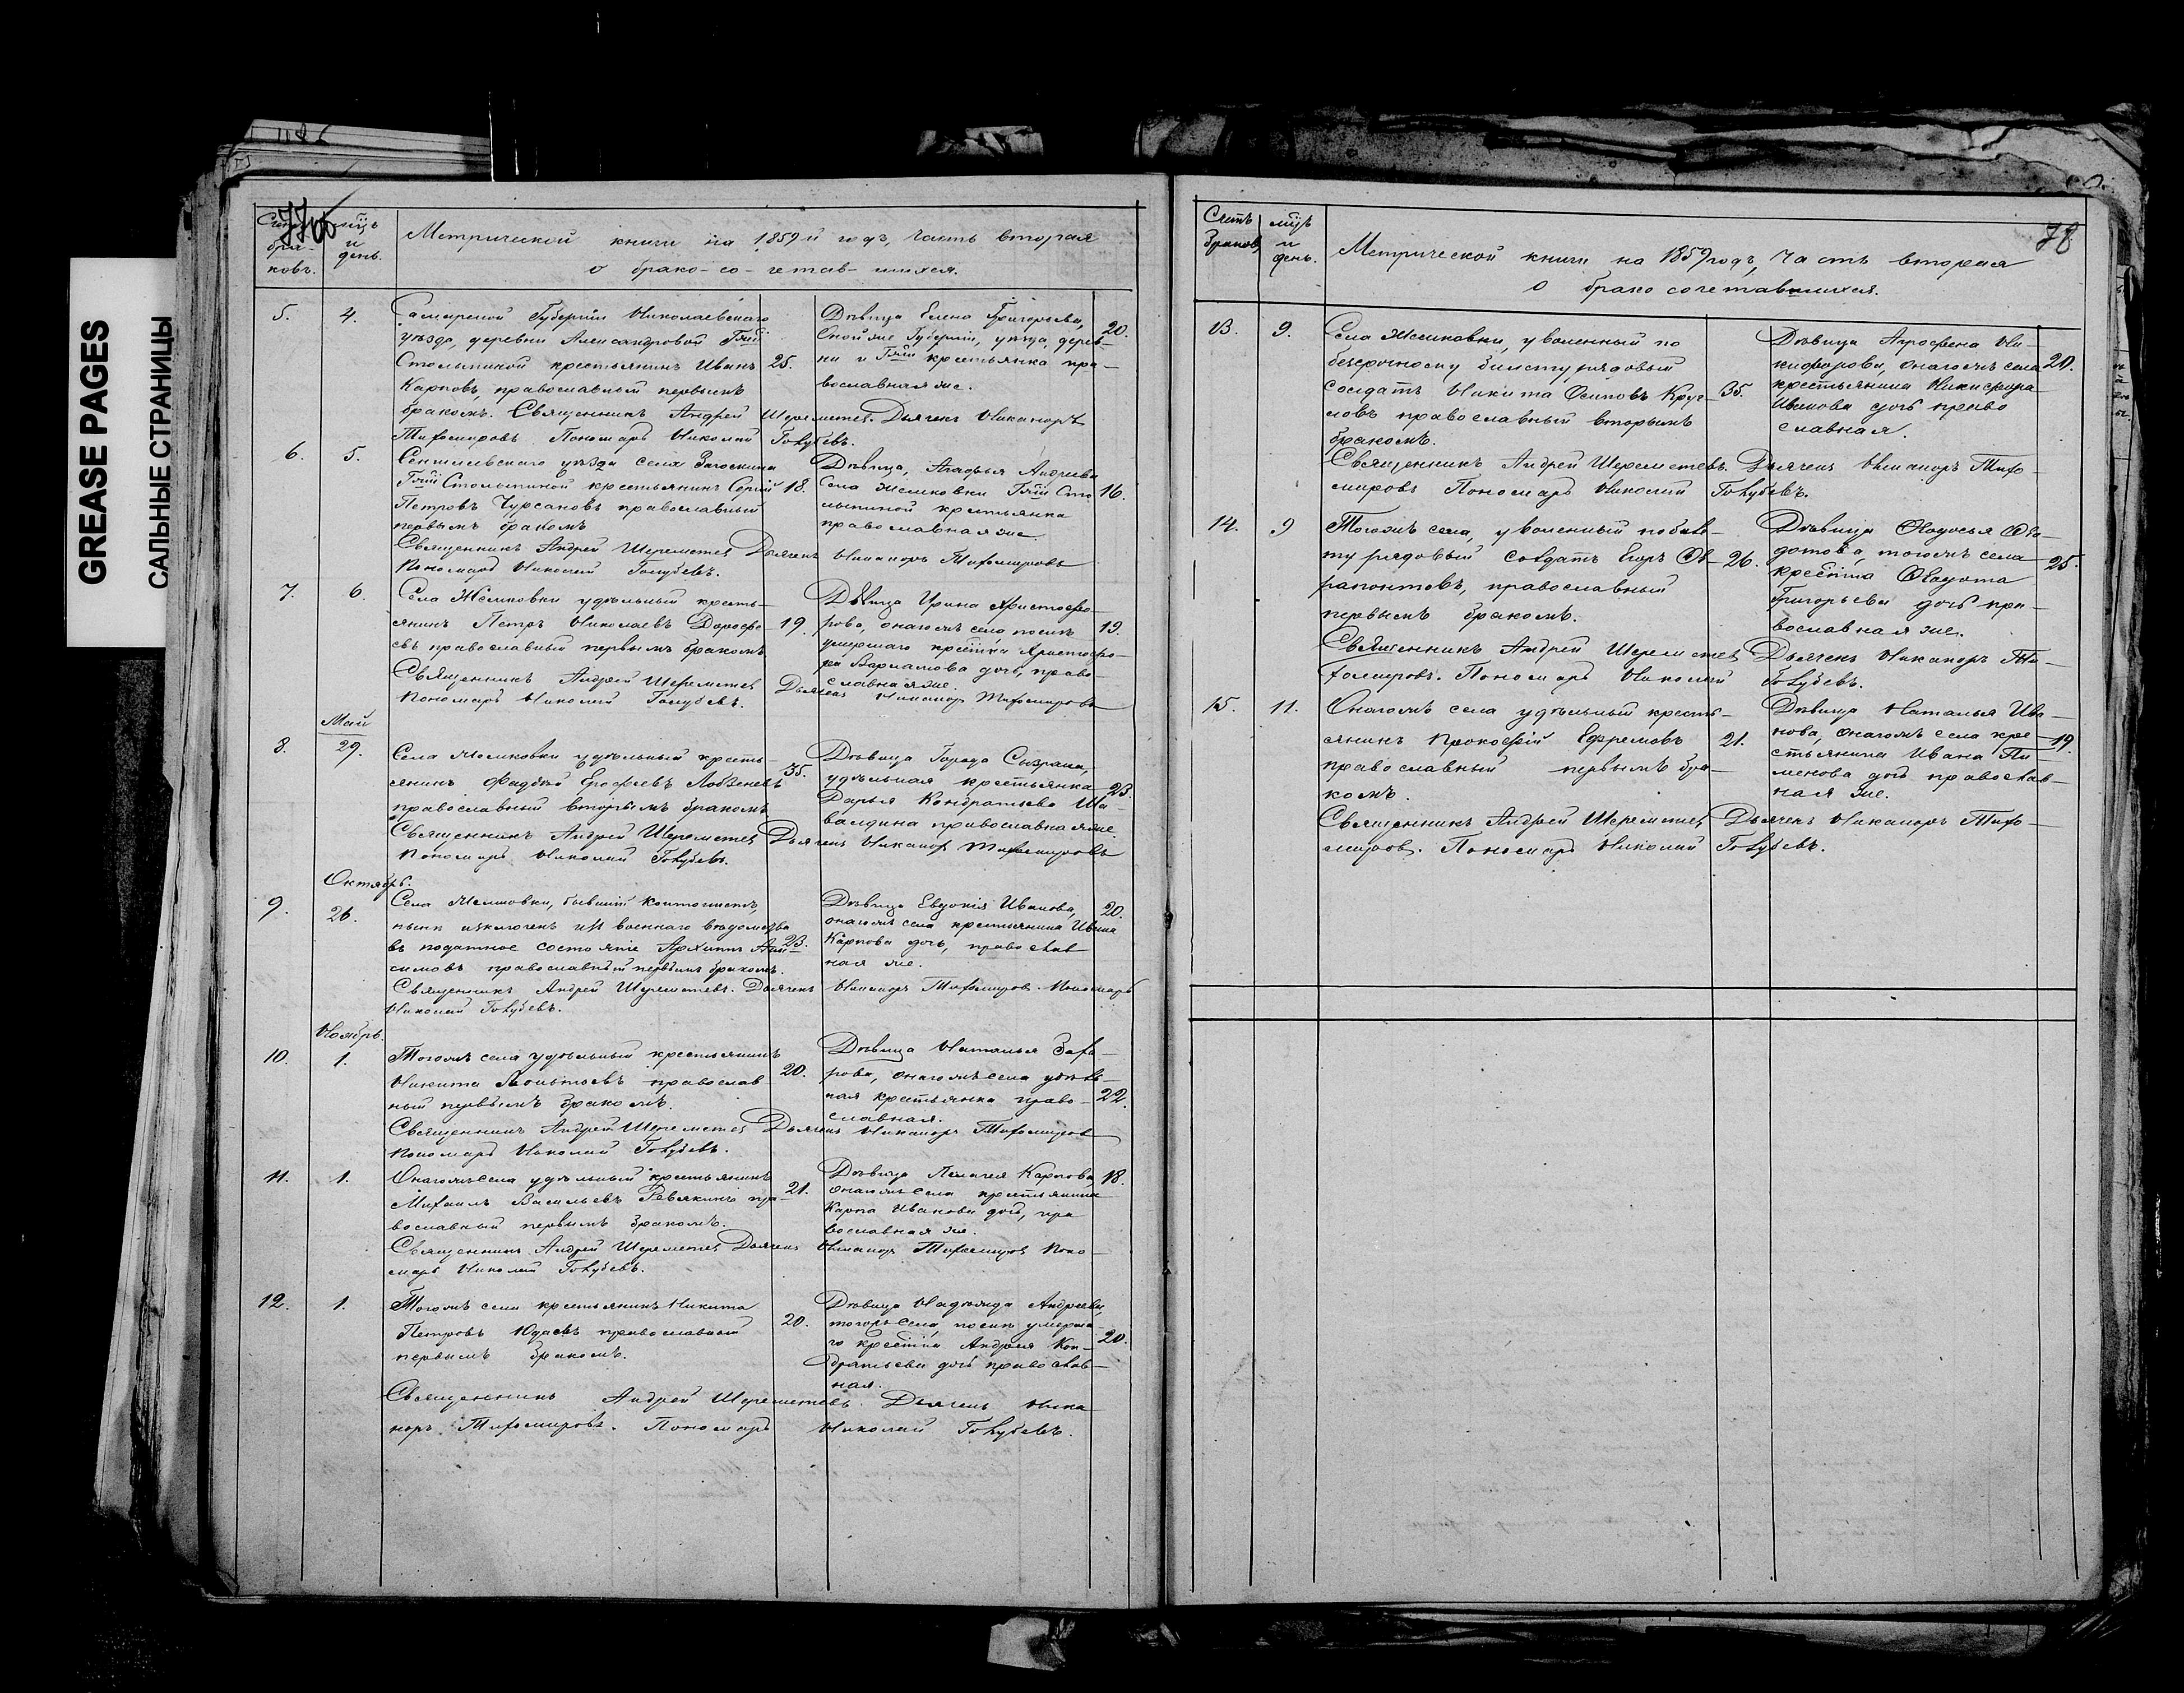 GREASE PAGES
САЛЬНЫЕ СТРАНИЦЫ
Счетъ бра-ковъ.
мцъ и день.
Метрической книги на 1859й годъ, часть вторая
о брако-со-четав-шихся.
5. 4.
Самарской Губерніи Николаевскаго
уѣзда, деревни Александровой Гжи
Столыпиной крестьянинъ Иванъ 25.
Карповъ, православный первымъ
бракомъ. Священникъ Андрей Шереметевъ. Дьячекъ Никаноръ
Тихомировъ Пономарь Николай Голубевъ.
Дѣвица Елена Григорьева, 20.
Оной же Губерніи, уѣзда, дерев-
ни и Гжи крестьянка пра-
вославная же.
6. 5.
Сенгилевскаго уѣзда села Загоскина
Гжи Столыпиной крестьянинъ Сергій 18.
Петровъ Чурсаковъ православный
первымъ бракомъ
Священникъ Андрей Шереметев Дьячекъ Никаноръ Тихомировъ
Пономарь Николай Голубевъ.
Дѣвица, Андреева
села Жемковки Гжи Сто 16.
лыпиной крестьянка
православная же
7. 6.
Села Жемковки удѣльный кресть-
янинъ Петръ Николаевъ Дорофе- 19.
евъ православный первымъ бракомъ
Священникъ Андрей Шереметев Дьячекъ Никанор Тихомировъ
Пономарь Николай Голубевъ.
Дѣвица Ирина Христофо-
рова, онагожъ села, послѣ 19.
умершаго крестна Христофо-
ра Варламова дочь, право-
славная же.
Май
8. 29.
Села Жемковки удѣльный кресть-
янинъ Фадѣй Ерофеевъ Лобзеневъ 35.
православный вторымъ бракомъ
Священникъ Андрей Шереметев Дьячекъ Никанор Тихомировъ
Пономарь Николай Голубевъ.
Дѣвица Города Сызрана,
удѣльная крестьянка 23.
Дарья Кондратьева Ша
валдина православная же
Октябрь.
9. 26.
Села Жемковки, бывшій кантонистъ,
нынѣ изключенъ изъ военнаго вѣдомства
въ податное состояніе Архипъ 23.
симовъ православный первымъ бракомъ.
Священникъ Андрей Шереметевъ. Дьячекъ Никаноръ Тихомиров. Пономарь
Николай Голубевъ.
Дѣвица Евдокія Иванова, 20.
онагожъ села крестьянина Ивана
Карпова дочь, православ
ная же.
Ноябрь.
10. 1.
Тогожъ села удѣльный крестьянинъ
Никита Леонтьевъ православ- 20.
ный первымъ бракомъ.
Священникъ Андрей Шереметев Дьячекъ Никаноръ Тихомиров
Пономарь Николай Голубевъ.
Дѣвица Наталья Заха-
рова, онагожъ села удѣль-
ная крестьянка право- 22.
славная.
11. 1.
Онагожъ села удѣльный крестьянинъ
Михаилъ Васильевъ Ревякинъ пра- 21.
вославный первымъ бракомъ.
Священникъ Андрей Шереметев Дьячекъ Никаноръ Тихомиров Поно-
марь Николай Голубевъ.
Дѣвица Пелагея Карпова, 18.
онагожъ села крестьянина
Карпа Иванова дочь, пра
вославная же.
12. 1.
Тогожъ села крестьянинъ Никита
Петровъ Юдаевъ православный 20.
первымъ бракомъ.
Дѣвица Надежда Андреева,
тогожъ села, послѣ умерша-
го крестна Андрея Кон- 20.
дратьева дочь православ-
ная.
Священникъ Андрей Шереметевъ. Дьячекъ Ника
норъ Тихомировъ. Пономарь Николай Голубевъ.
78
Счетъ браков
мцъ и день.
Метрической книги на 1859 годъ, часть вторая
о брако сочетавшихся.
13. 9.
Села Жемковки, уволенный по
безсрочному билету рядовый
солдатъ Никита Осиповъ Круг- 35.
ловъ православный вторымъ
бракомъ.
Священникъ Андрей Шереметевъ. Дьячекъ Никаноръ Тихо-
мировъ Пономарь Николай Голубевъ.
Дѣвица Агрофена Ни-
кифорова, онагожъ села 20.
крестьянина Никифора
Иванова дочь право
славная.
14. 9
Тогожъ села, уволенный по биле-
ту рядовый солдатъ Егоръ Фе- 26.
рапонтовъ, православный
первымъ бракомъ.
Священникъ Андрей Шереметев Дьячекъ Никаноръ Ти-
хомировъ. Пономарь Николай Голубевъ.
Дѣвица Федосья Фе-
дотова, тогожъ села 25.
крестна Федота
Григорьева дочь пра-
вославная же.
15. 11.
Онагожъ села удѣльный кресть-
янинъ Прокофій Ефремовъ 21.
православный первымъ бра-
комъ.
Священникъ Андрей Шереметев Дьячекъ Никаноръ Тихо-
миров. Пономарь Николай Голубевъ.
Дѣвица Наталья Ива-
нова, онагожъ села кре- 19.
стьянина Ивана Пи-
менова дочь православ-
ная же.